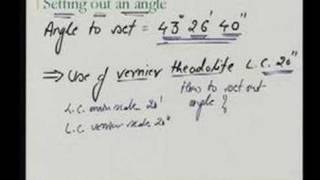 Setting out an angle
Angle to set = 43° 26' 40"
⇒ Use of vernier theodolite L.C. 20"
L.C. main scale 20'
How to set out
L.C. vernier scale 20"
angle?